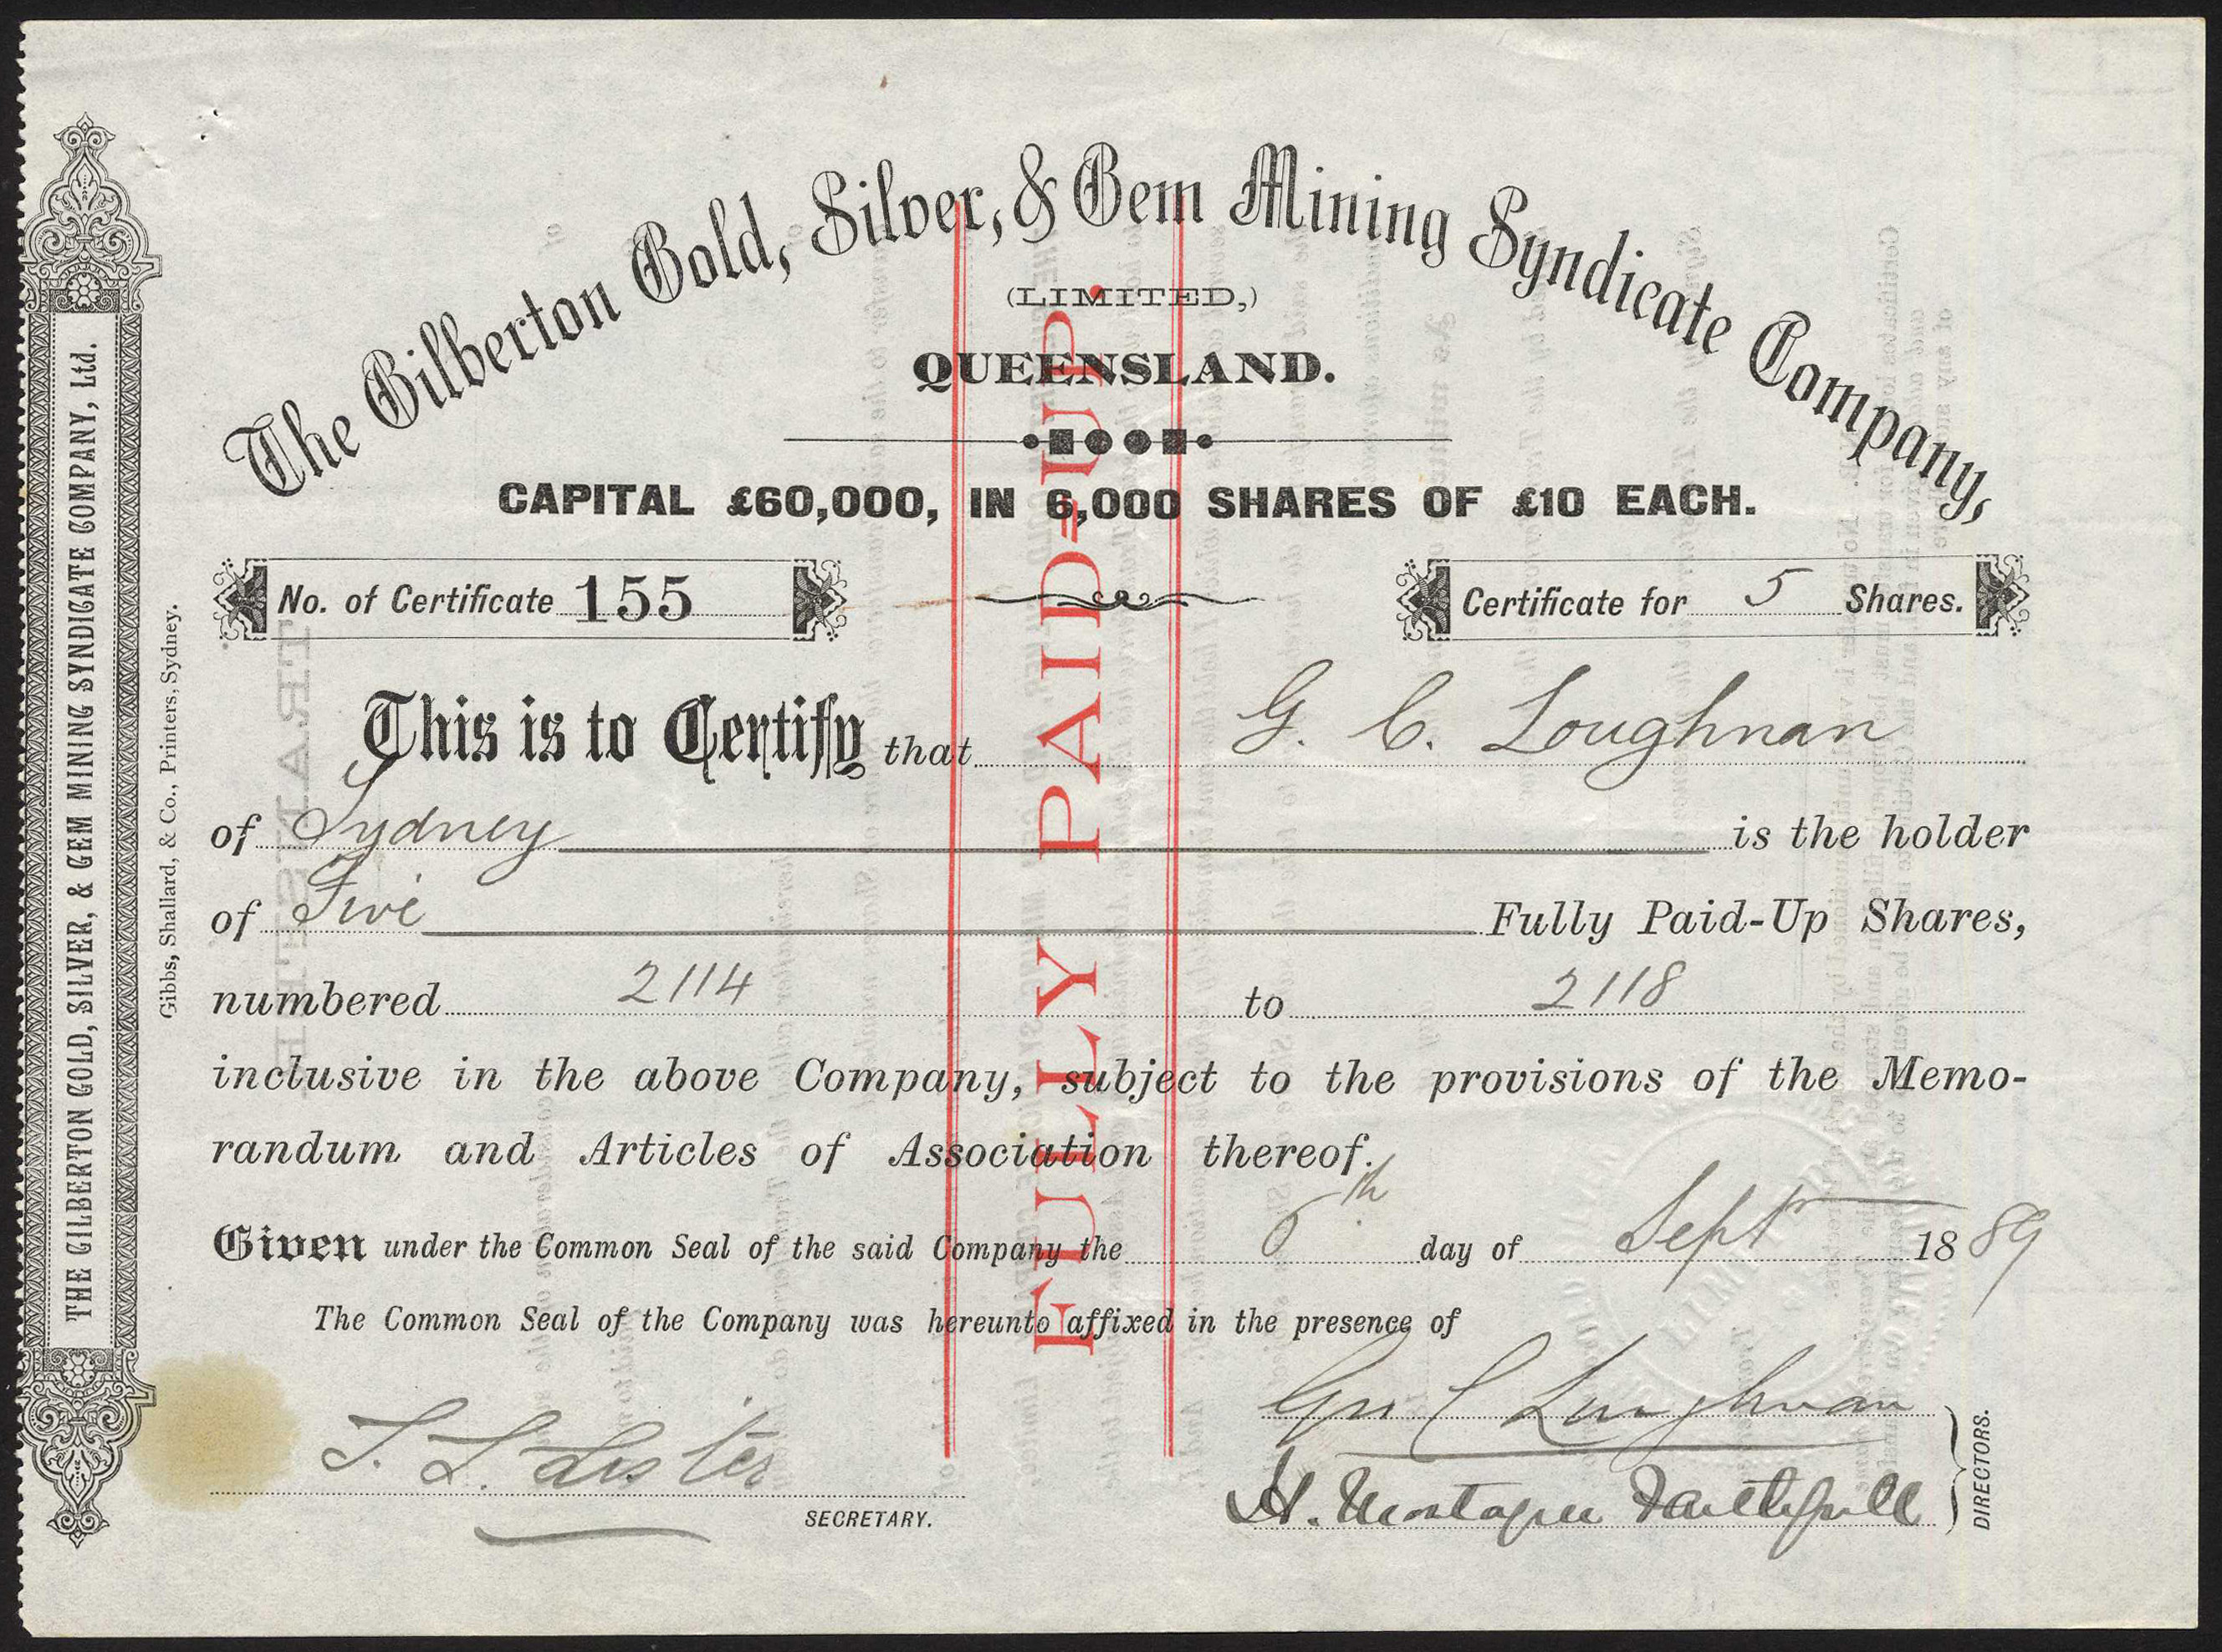 The Gilberton Gold, Silver, & Gem Mining Syndicate Company,
(LIMITED,)
QUEENSLAND.
CAPITAL £60,000, IN 6,000 SHARES OF £10 EACH.
No. of Certificate 155
Certificate for 5 Shares.
This is to Certify that G. C. Loughnan
of Sydney is the holder
of Five Fully Paid-Up Shares,
numbered 2114 to 2118
inclusive in the above Company, subject to the provisions of the Memo-
randum and Articles of Association thereof.
Given under the Common Seal of the said Company the 6th day of Sept 1889
The Common Seal of the Company was hereunto affixed in the presence of
Geo C Loughnan
T. L. Lister
SECRETARY.
H. Montague Faithfull
DIRECTORS.
FULLY PAID-UP.
THE GILBERTON GOLD, SILVER, & GEM MINING SYNDICATE COMPANY, Ltd.
Gibbs, Shallard, & Co., Printers, Sydney.